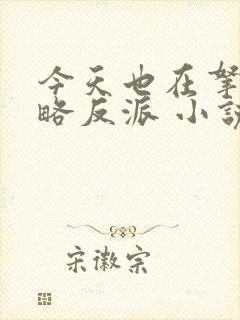 今天也在努
略反派 小说
宋徽宗